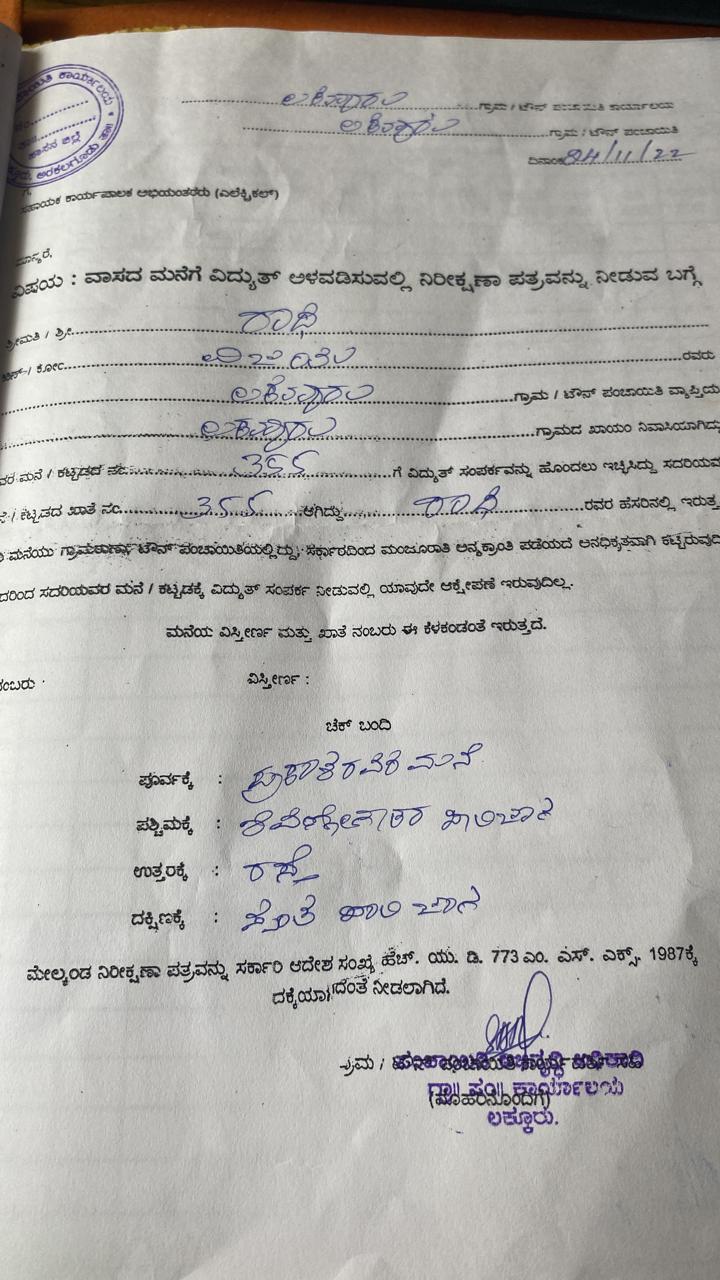 ಕಾರ್ಯಾಲಯ
ಹಾಸನ ಜಿಲ್ಲೆ
ಅರಕಲಗೂಡು
ಗ್ರಾಮ / ಟೌನ್ ಪಂಚಾಯಿತಿ ಕಾರ್ಯಾಲಯ
ಗ್ರಾಮ / ಟೌನ್ ಪಂಚಾಯಿತಿ
ದಿನಾಂಕ 24/11/22
ಗೆ,
ಸಹಾಯಕ ಕಾರ್ಯಪಾಲಕ ಅಭಿಯಂತರರು (ಎಲೆಕ್ಟ್ರಿಕಲ್)
ಮಾನ್ಯರೆ,
ವಿಷಯ : ವಾಸದ ಮನೆಗೆ ವಿದ್ಯುತ್ ಅಳವಡಿಸುವಲ್ಲಿ ನಿರೀಕ್ಷಣಾ ಪತ್ರವನ್ನು ನೀಡುವ ಬಗ್ಗೆ
ಶ್ರೀಮತಿ / ಶ್ರೀ. ರಾಧೆ
ಕೋಂ ರವರು
ಗ್ರಾಮ / ಟೌನ್ ಪಂಚಾಯಿತಿ ವ್ಯಾಪ್ತಿಯ
ಗ್ರಾಮದ ಖಾಯಂ ನಿವಾಸಿಯಾಗಿದ್ದು
ರವರ ಮನೆ / ಕಟ್ಟಡದ ನಂ. 355 ಗೆ ವಿದ್ಯುತ್ ಸಂಪರ್ಕವನ್ನು ಹೊಂದಲು ಇಚ್ಛಿಸಿದ್ದು ಸದರಿಯವ
/ ಕಟ್ಟಡದ ಖಾತೆ ನಂ. 355 ಆಗಿದ್ದು ರಾಧೆ ರವರ ಹೆಸರಿನಲ್ಲಿ ಇರುತ್ತ
ಮನೆಯು ಗ್ರಾಮಠಾಣಾ/ ಟೌನ್ ಪಂಚಾಯಿತಿಯಲ್ಲಿದ್ದು, ಸರ್ಕಾರದಿಂದ ಮಂಜೂರಾತಿ ಅನ್ಯಕ್ರಾಂತಿ ಪಡೆಯದೆ ಅನಧಿಕೃತವಾಗಿ ಕಟ್ಟಿರುವುದ
ದರಿಂದ ಸದರಿಯವರ ಮನೆ / ಕಟ್ಟಡಕ್ಕೆ ವಿದ್ಯುತ್ ಸಂಪರ್ಕ ನೀಡುವಲ್ಲಿ ಯಾವುದೇ ಆಕ್ಷೇಪಣೆ ಇರುವುದಿಲ್ಲ.
ಮನೆಯ ವಿಸ್ತೀರ್ಣ ಮತ್ತು ಖಾತೆ ನಂಬರು ಈ ಕೆಳಕಂಡಂತೆ ಇರುತ್ತದೆ.
ನಂಬರು ವಿಸ್ತೀರ್ಣ :
ಚೆಕ್ ಬಂದಿ
ಪೂರ್ವಕ್ಕೆ : ಪ್ರಕಾಶರವರ ಮನೆ
ಪಶ್ಚಿಮಕ್ಕೆ : ಖಾಲಿಜಾಗ
ಉತ್ತರಕ್ಕೆ : ರಸ್ತೆ
ದಕ್ಷಿಣಕ್ಕೆ : ಸ್ವಂತ ಖಾಲಿ ಜಾಗ
ಮೇಲ್ಕಂಡ ನಿರೀಕ್ಷಣಾ ಪತ್ರವನ್ನು ಸರ್ಕಾರಿ ಆದೇಶ ಸಂಖ್ಯೆ ಹೆಚ್. ಯು. ಡಿ. 773 ಎಂ. ಎಸ್. ಎಕ್ಸ್. 1987ಕ್ಕೆ
ದಕ್ಕೆಯಾಗದಂತೆ ನೀಡಲಾಗಿದೆ.
ಪಂಚಾಯಿತಿ ಅಭಿವೃದ್ಧಿ ಅಧಿಕಾರಿ
ಗ್ರಾ॥ ಪಂ॥ ಕಾರ್ಯಾಲಯ
(ಮೊಹರಿನೊಂದಿಗೆ)
ಲಕ್ಕೂರು.